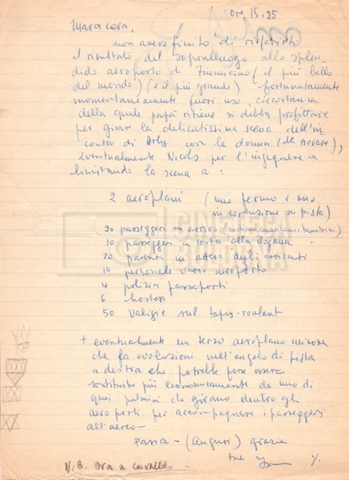 ore 15.25
Mara cara,
non avevo finito di riferirti
il risultato del sopralluogo allo splen-
dido aeroporto di Fiumicino (il più bello
del mondo) (e il più grande) fortunatamente
momentaneamente fuori uso, circostanza
della quale papà ritiene si debba profittare
per girare la delicatissima scena dell'in
contro di con la donna (
eventualmente Nicols per l'ingegnere
limitando la scena a:
2 aeroplani (uno fermo e uno
in evoluzione su pista)
20 passeggeri in arrivo (
10 passeggeri in sosta alla dogana "
20 parenti in attesa degli arrivanti
10 personale vario aeroporto
4 polizia passaporti
6 hostess
50 valigie sul tapis-roulant
+ eventualmente un terzo aeroplano
che fa evoluzioni nell'angolo di pista
a destra che potrebbe forse essere
sostituito più economicamente da uno di
quei pulmini che girano dentro gli
aeroporti per accompagnare i passeggeri
all'aereo-
passa - (Auguri) grazie
tua
N.B. ora a cavallo